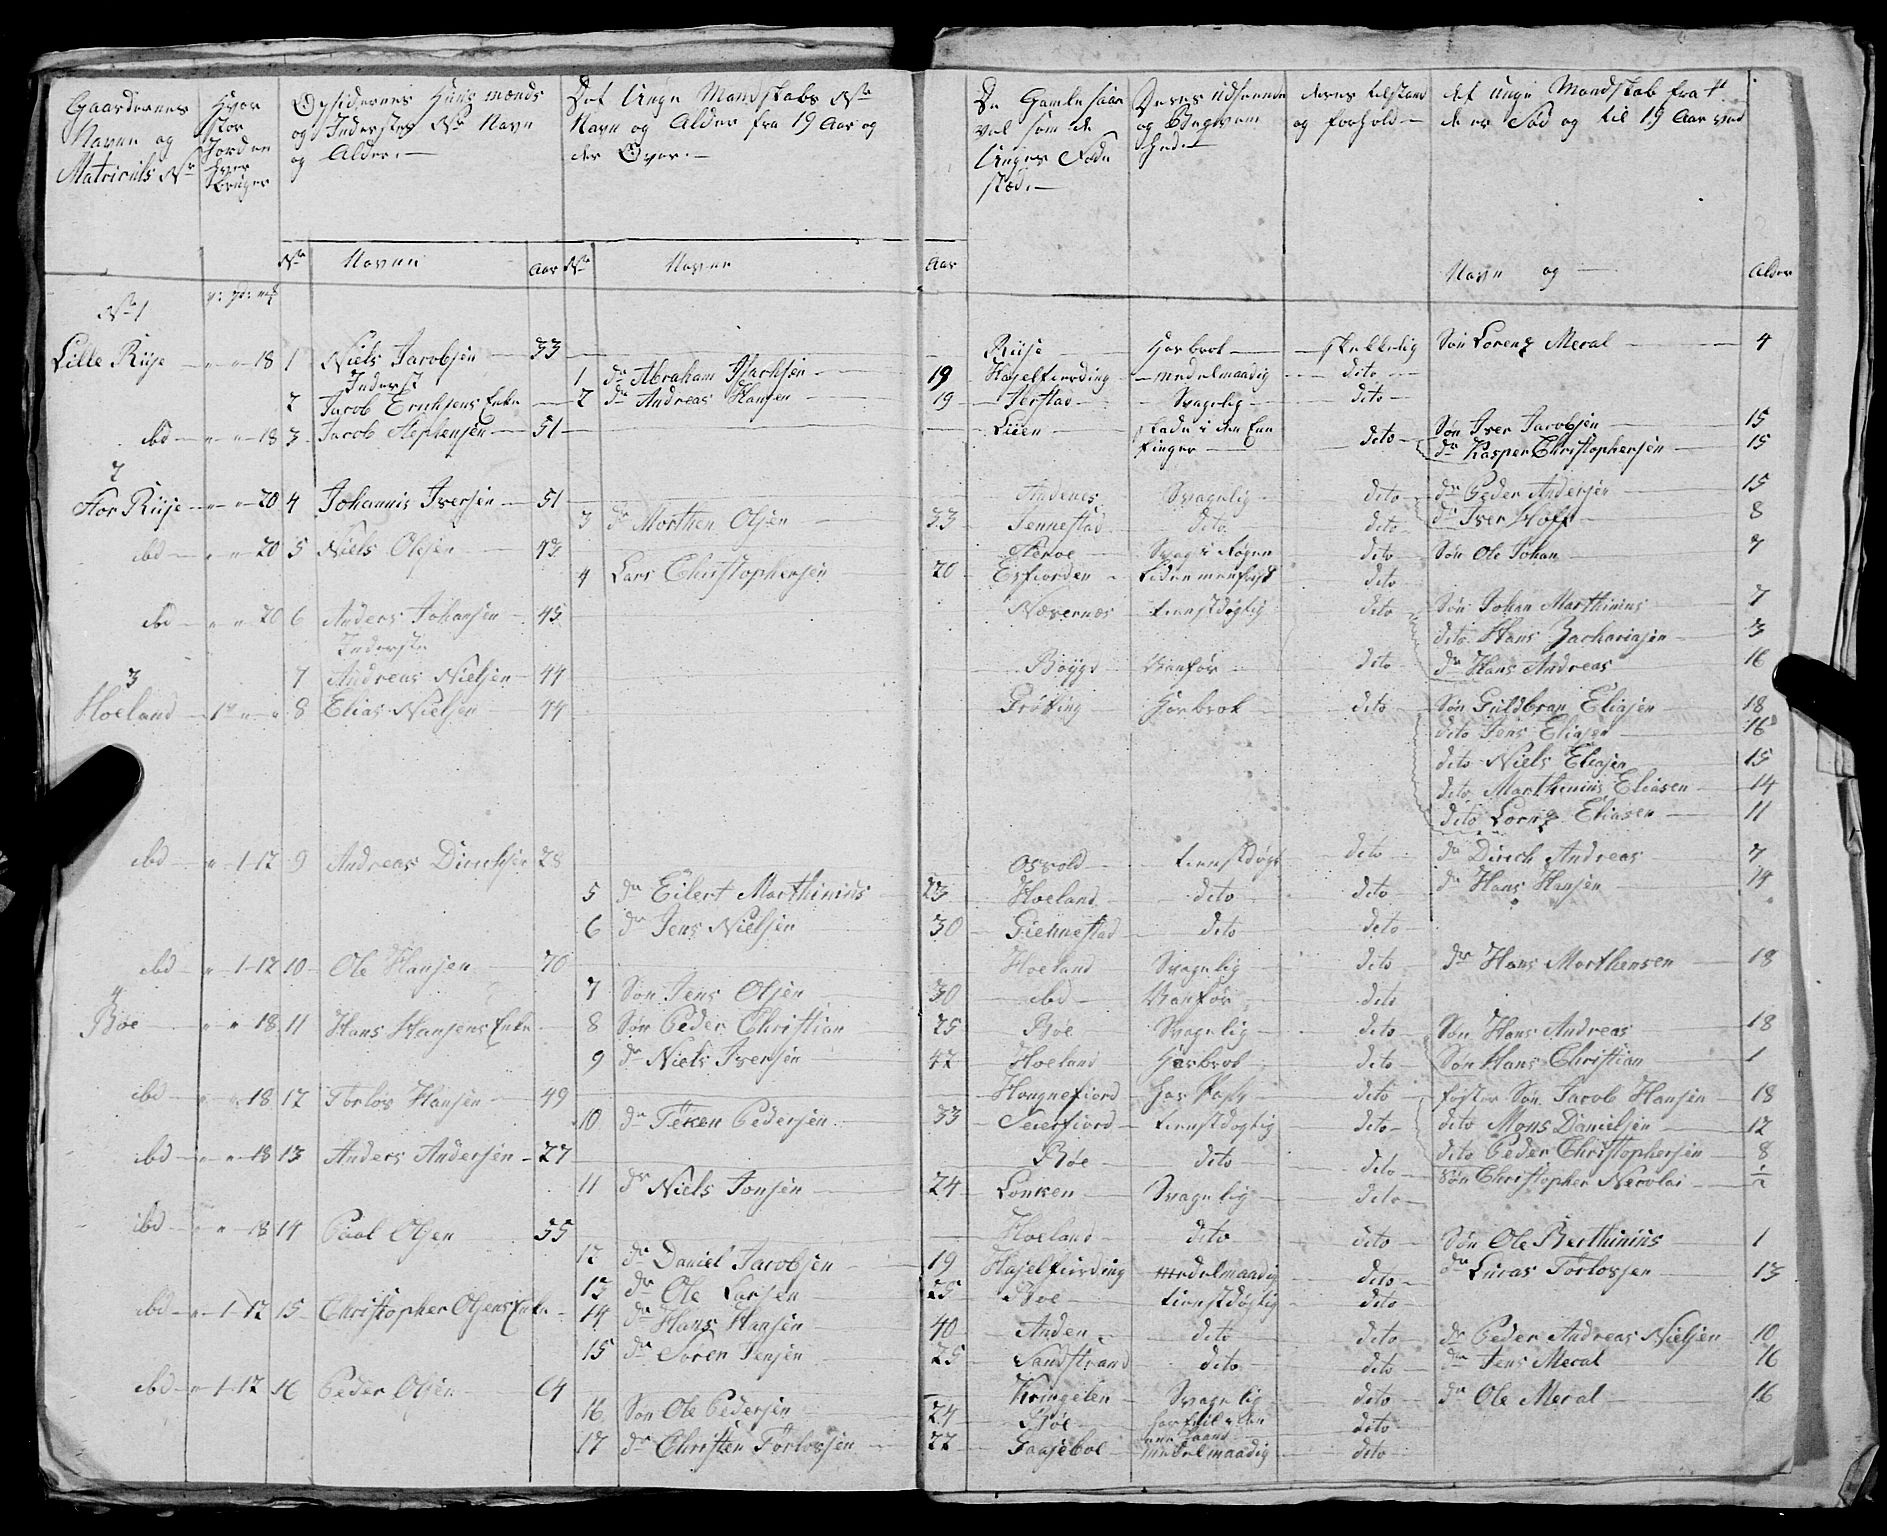 Gaardernes Navne og Matriculs No
Hvor stor Jord en hver bruger
Opsidernes Huusmænds og Inderster No Navn og Alder
Det Unge Mandskabs No Navn og Alder fra 19 Aar og der Over
De Gamle saavel som de Unges Føde stæd
Deres udseende og Begvemhed
deres tilstand og forhold
det unge Mandskab fra de er Fød og til 19 Aar ved
No Navne Aar No Navne Aar Navn og Alder
No 1
Lille Riise " " 18 1 Niels Jacobsen 33 Riise Havbrok skikkelig Søn Lorenz Meral 4
Inderst 1 do Abraham Isachsen 19 Hasselfiording medelmaadig dito
2 Jacob Erichsens Enke 2 do Andreas Hansen 19 Jerstad Svagelig dito
ibd " " 18 3 Jacob Stephensen 51 Liien skade i den Ene Finger dito Søn Iver Jacobsen 15
do Kasper Christophersen 15
2
Stor Riise " " 20 4 Johannis Iversen 51 Andenes Svagelig dito do Peder Andersen 15
3 do Morthen Olsen 33 Jennestad dito dito do Iver Wolf 8
ibd " " 20 5 Niels Olsen 43 Sterøe Svag i Øgene dito Søn Ole Johan 7
4 Lars Christophersen 20 Esfiorden Liden men frisk dito
ibd " " 20 6 Anders Johansen 45 Næsvernæs tienstdygtig dito Søn Johan Marthinius 7
Inderste dito Hans Zachariasen 3
7 Andreas Nielsen 44 Bøyge Vanfør dito do Hans Andreas 16
3
Hoeland 1 " " 8 Elias Nielsen 44 Grøtting Havbrok dito Søn Guldbran Eliasen 18
dito Jens Eliasen 16
dito Niels Eliasen 15
dito Marthinius Eliasen 14
dito Lornz Eliasen 11
ibd " 1-12 9 Andreas Dinchsen 28 Osvold tienstdøgt dito do Dinch Andreas 7
5 do Eilert Marthinius 23 Hoeland dito dito do Hans Hansen 14
6 do Jens Nielsen 30 Giennestad dito dito
ibd " 1-12 10 Ole Hansen 70 Hoeland Svagelig dito do Hans Morthensen 18
7 Søn Jens Olsen 30 ibd Vanfør dito
4
Bøe " " 18 11 Hans Hansens Enke 8 Søn Peder Christian 25 Bøe Svagelig dito Søn Hans Andreas 18
9 do Niels Iversen 42 Hoeland Havbrok dito Søn Hans Christian 1
ibd " " 18 12 Torlov Hansen 49 Hongnefiord dito foster Søn Jacob Hansen 18
10 do Teken Pedersen 33 Seierfiord tienstdøgtig dito dito Mons Danielsen 12
ibd " " 18 13 Anders Andersen 27 Bøe dito dito dito Peder Christophersen 8
11 do Niels Jonsen 24 Lonken Svagelig dito Søn Christopher Necolai ½
ibd " " 18 14 Paal Olsen 55 Hoeland dito dito Søn Ole Berthinius 1
12 do Daniel Jacobsen 19 Hasselfiording medelmaadig dito do Lucas Torlovsen 13
13 do Ole Larsen 25 Bøe tienstdøgtig dito
ibd " 1-12 15 Christopher Olsens Enke 14 do Hans Hansen 40 Anden dito dito do Peder Andreas Nielsen 10
15 do Søren Jensen 25 Sandstrand dito dito do Jens Meral 16
ibd " 1-12 16 Peder Olsen 64 Kringelen Svagelig dito do Ole Meral 16
16 Søn Ole Pedersen 24 Bøe har feil i den ene haand dito
17 do Christen Torlovsen 22 Gaasebøe medelmaadig dito